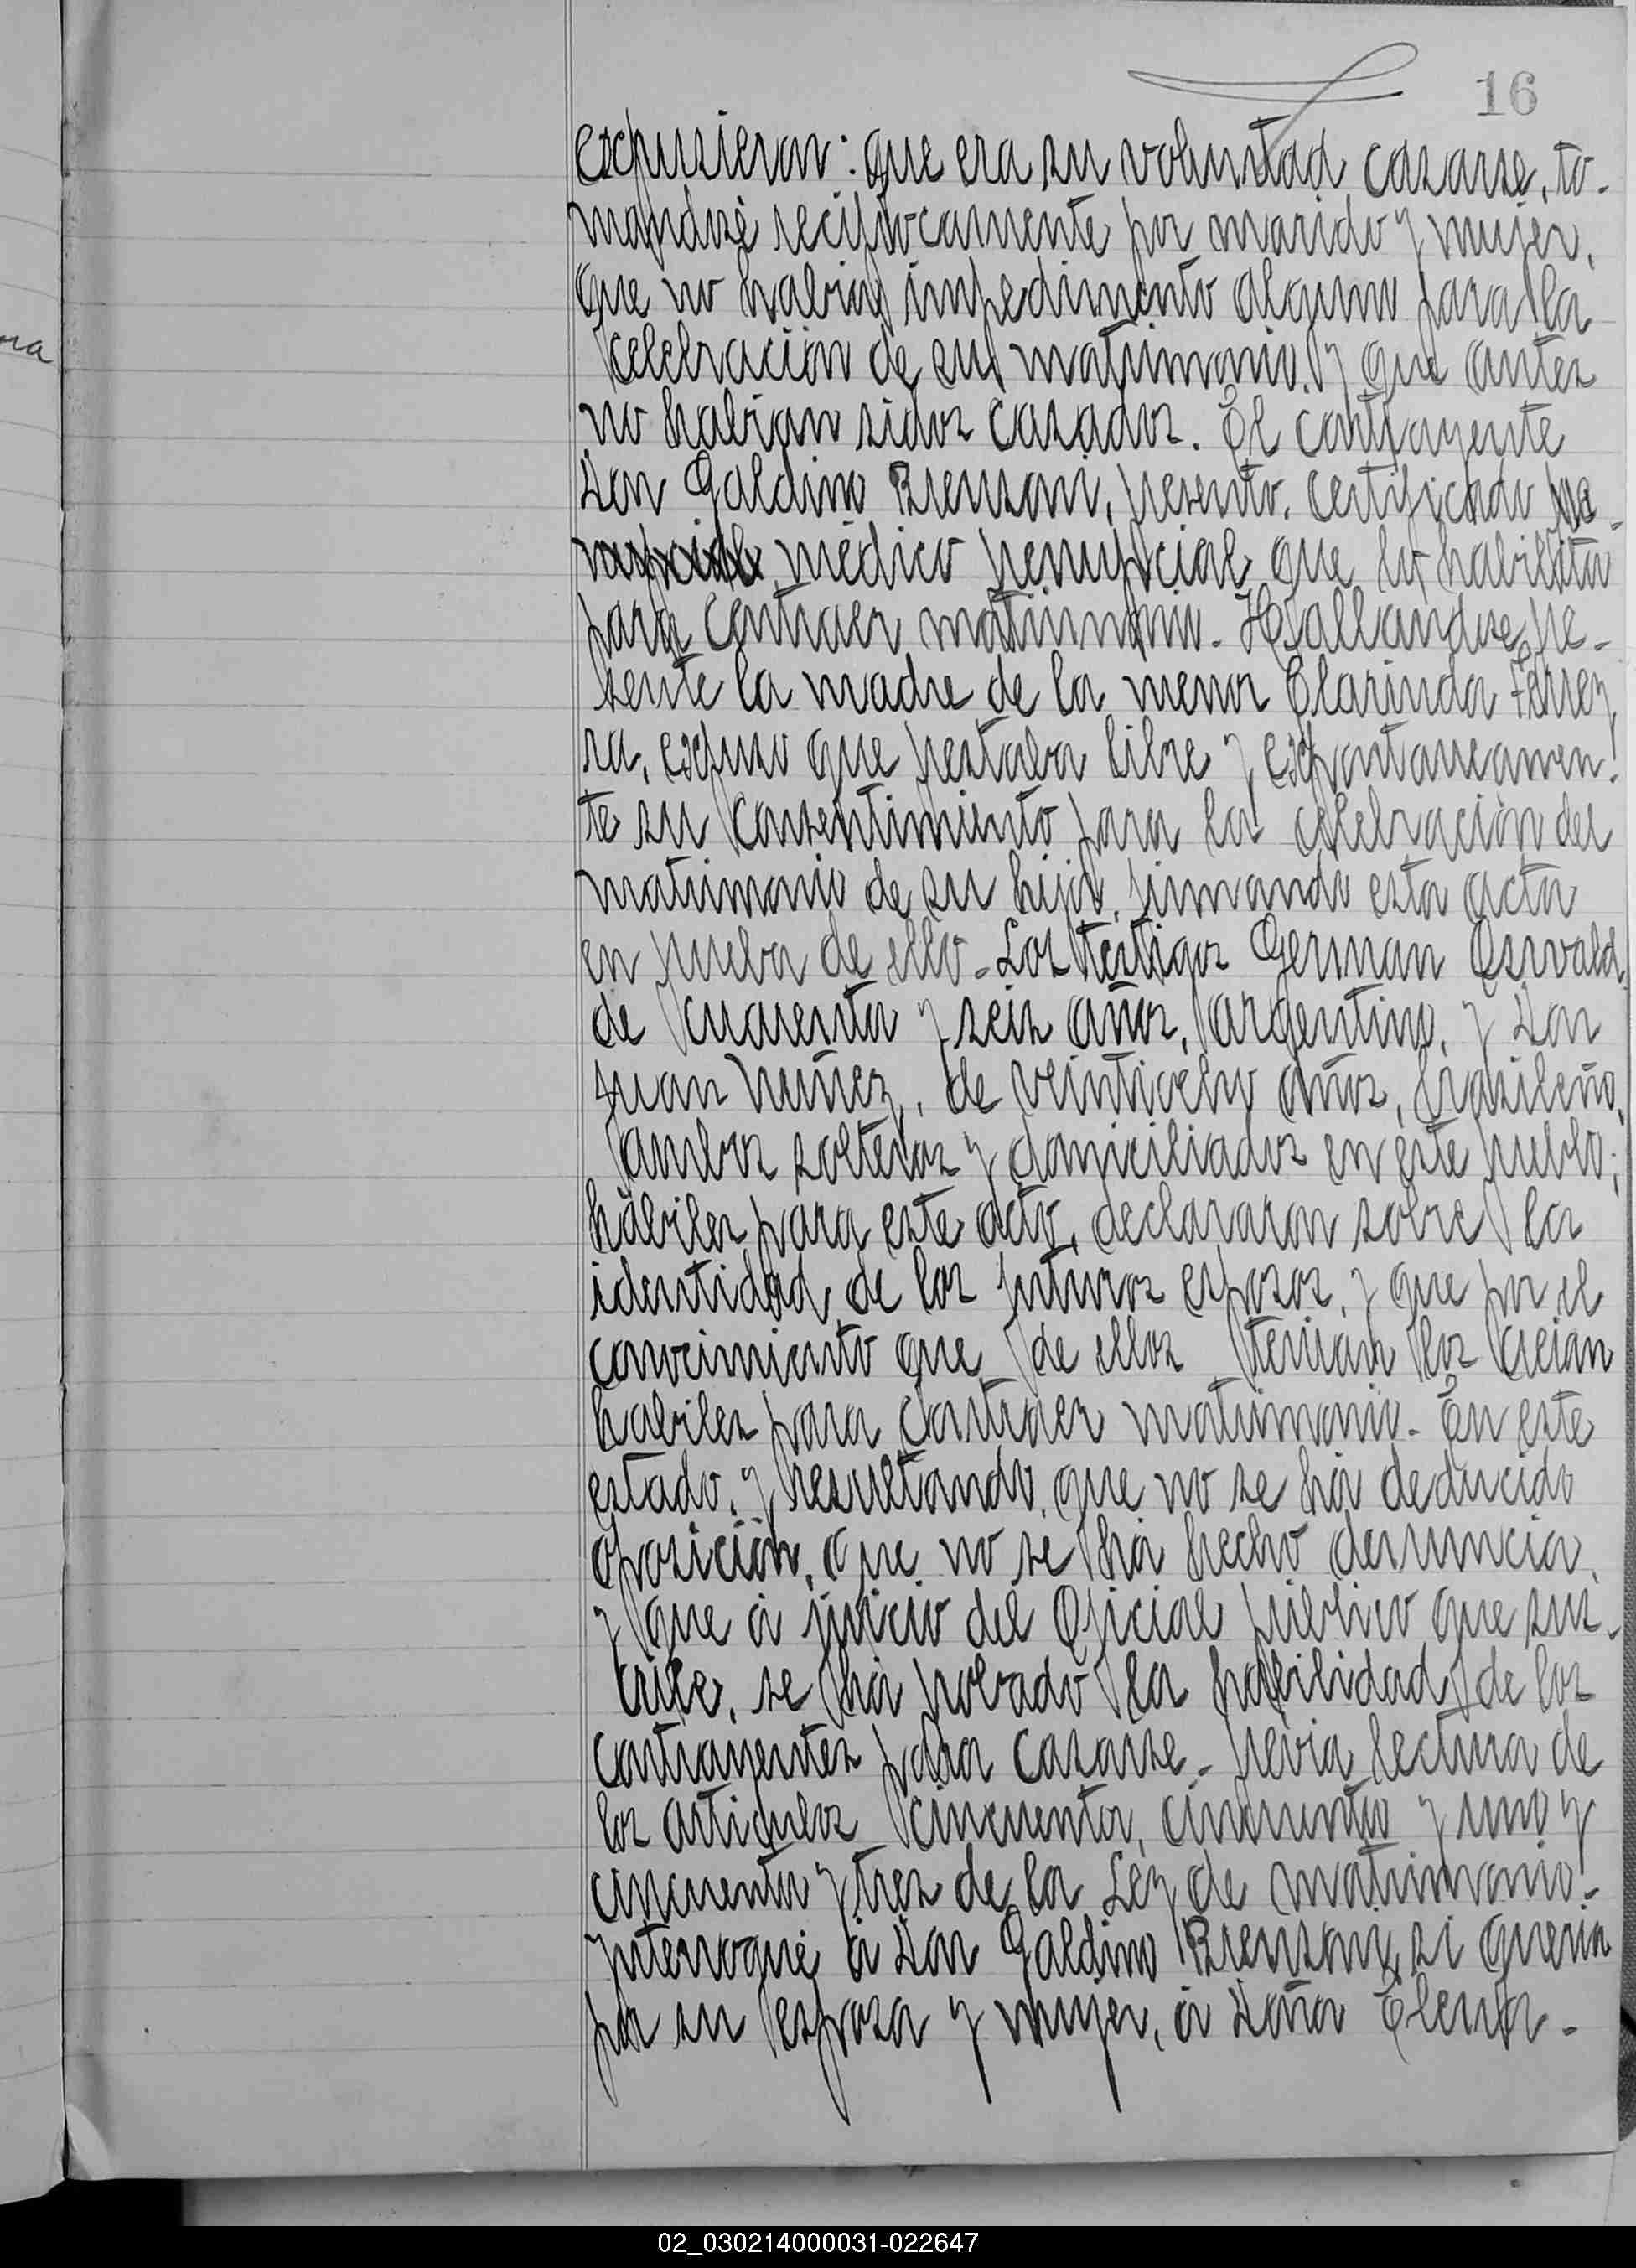 16
expusieron: que era su voluntad casarse, to-
mandosé recíprocamente por marido y mujer,
que no habia impedimento alguno para la
celebración de su matrimonio, y que antes
no habian sidos casados. El contrayente
Don Galdino Brensoni, presento, certificado pre-
médico prenupcial que lo habilita
para contraer matrimonio. Hallandose pre-
sente la madre de la menor Clarinda Ferrey
ra, expuso que prestaba libre y expontaneamen-
te su consentimiento para la celebración del
matrimonio de su hija, firmando esta acta
en prueba de ello. Los testigos German Osvald,
de cuarenta y seis años, argentino, y Don
Juan Nuñez, de veintiocho años, brasileño,
ambos solteros y domiciliados en este pueblo;
hábiles para este acto, declararon sobre la
identidad de los futuros esposos, y que por el
conocimiento que de ellos tenian los creian
habiles para contraer matrimonio. En este
estado, y resultando, que no se há deducido
oposición, que no se há hecho denuncia,
y que á juicio del Oficial público que sus-
cribe, se há probado la habilidad de los
contrayentes para casarse. previa lectura de
los articulos cincuenta, cincuenta y uno y
cincuenta y tres de la Ley de matrimonio.
interrogué á Don Galdino Brensoni, si queria
por su esposa y mujer, á Doña Elena-
02_030214000031-022647